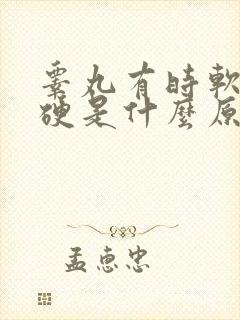 睾丸有時軟
硬是什麼原
孟惠忠